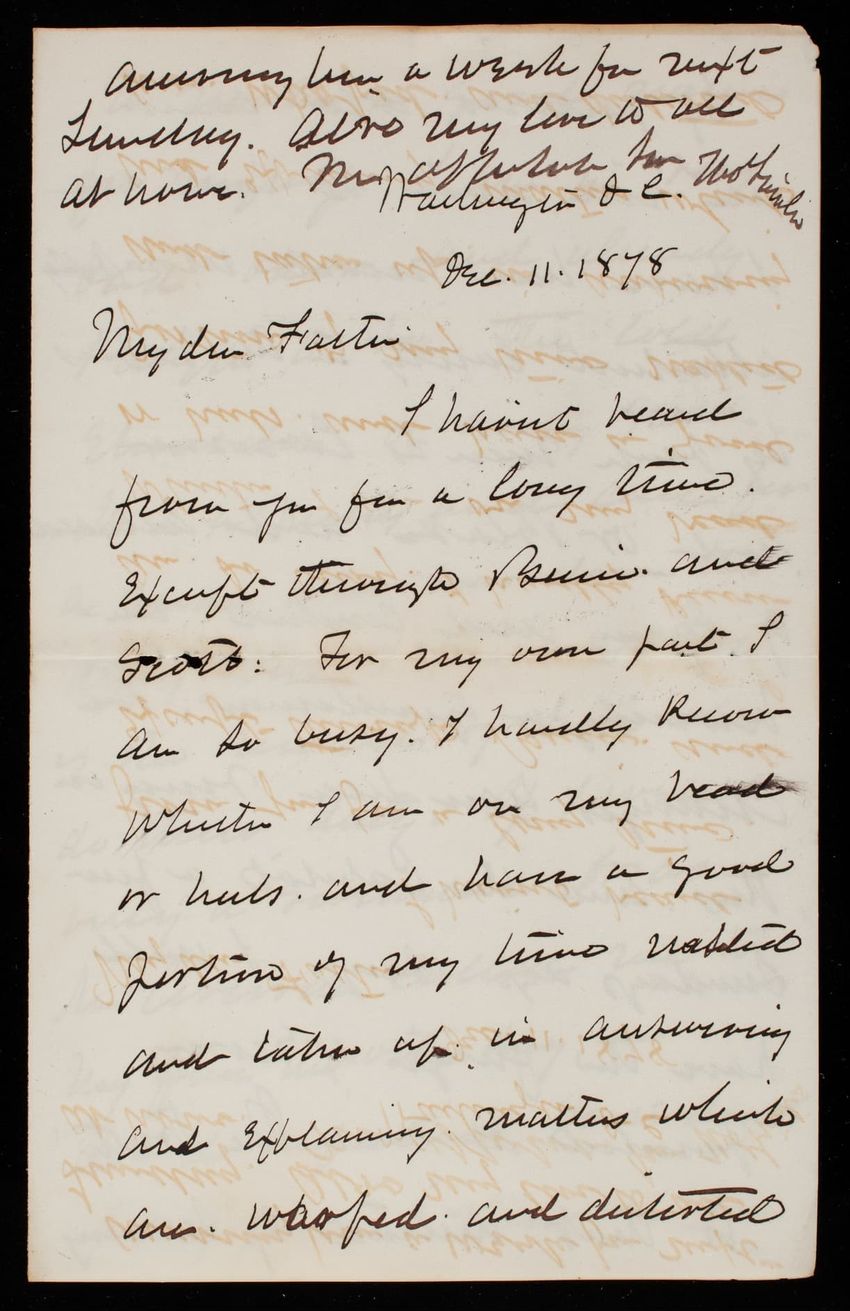 a week for next
Sunday. Also my love to all
at home. Your affectionate son Tho Lincoln
Washington D.C.
Dec. 11. 1878
My dear Father
I havnt heard
from you for a long time.
Except through and
Scott: For my own part I
am so busy. I hardly know
whether I am on my head
or heels. and have a good
portion of my time wasted
and taken up in answering
and Explaining matters which
are warped and distorted